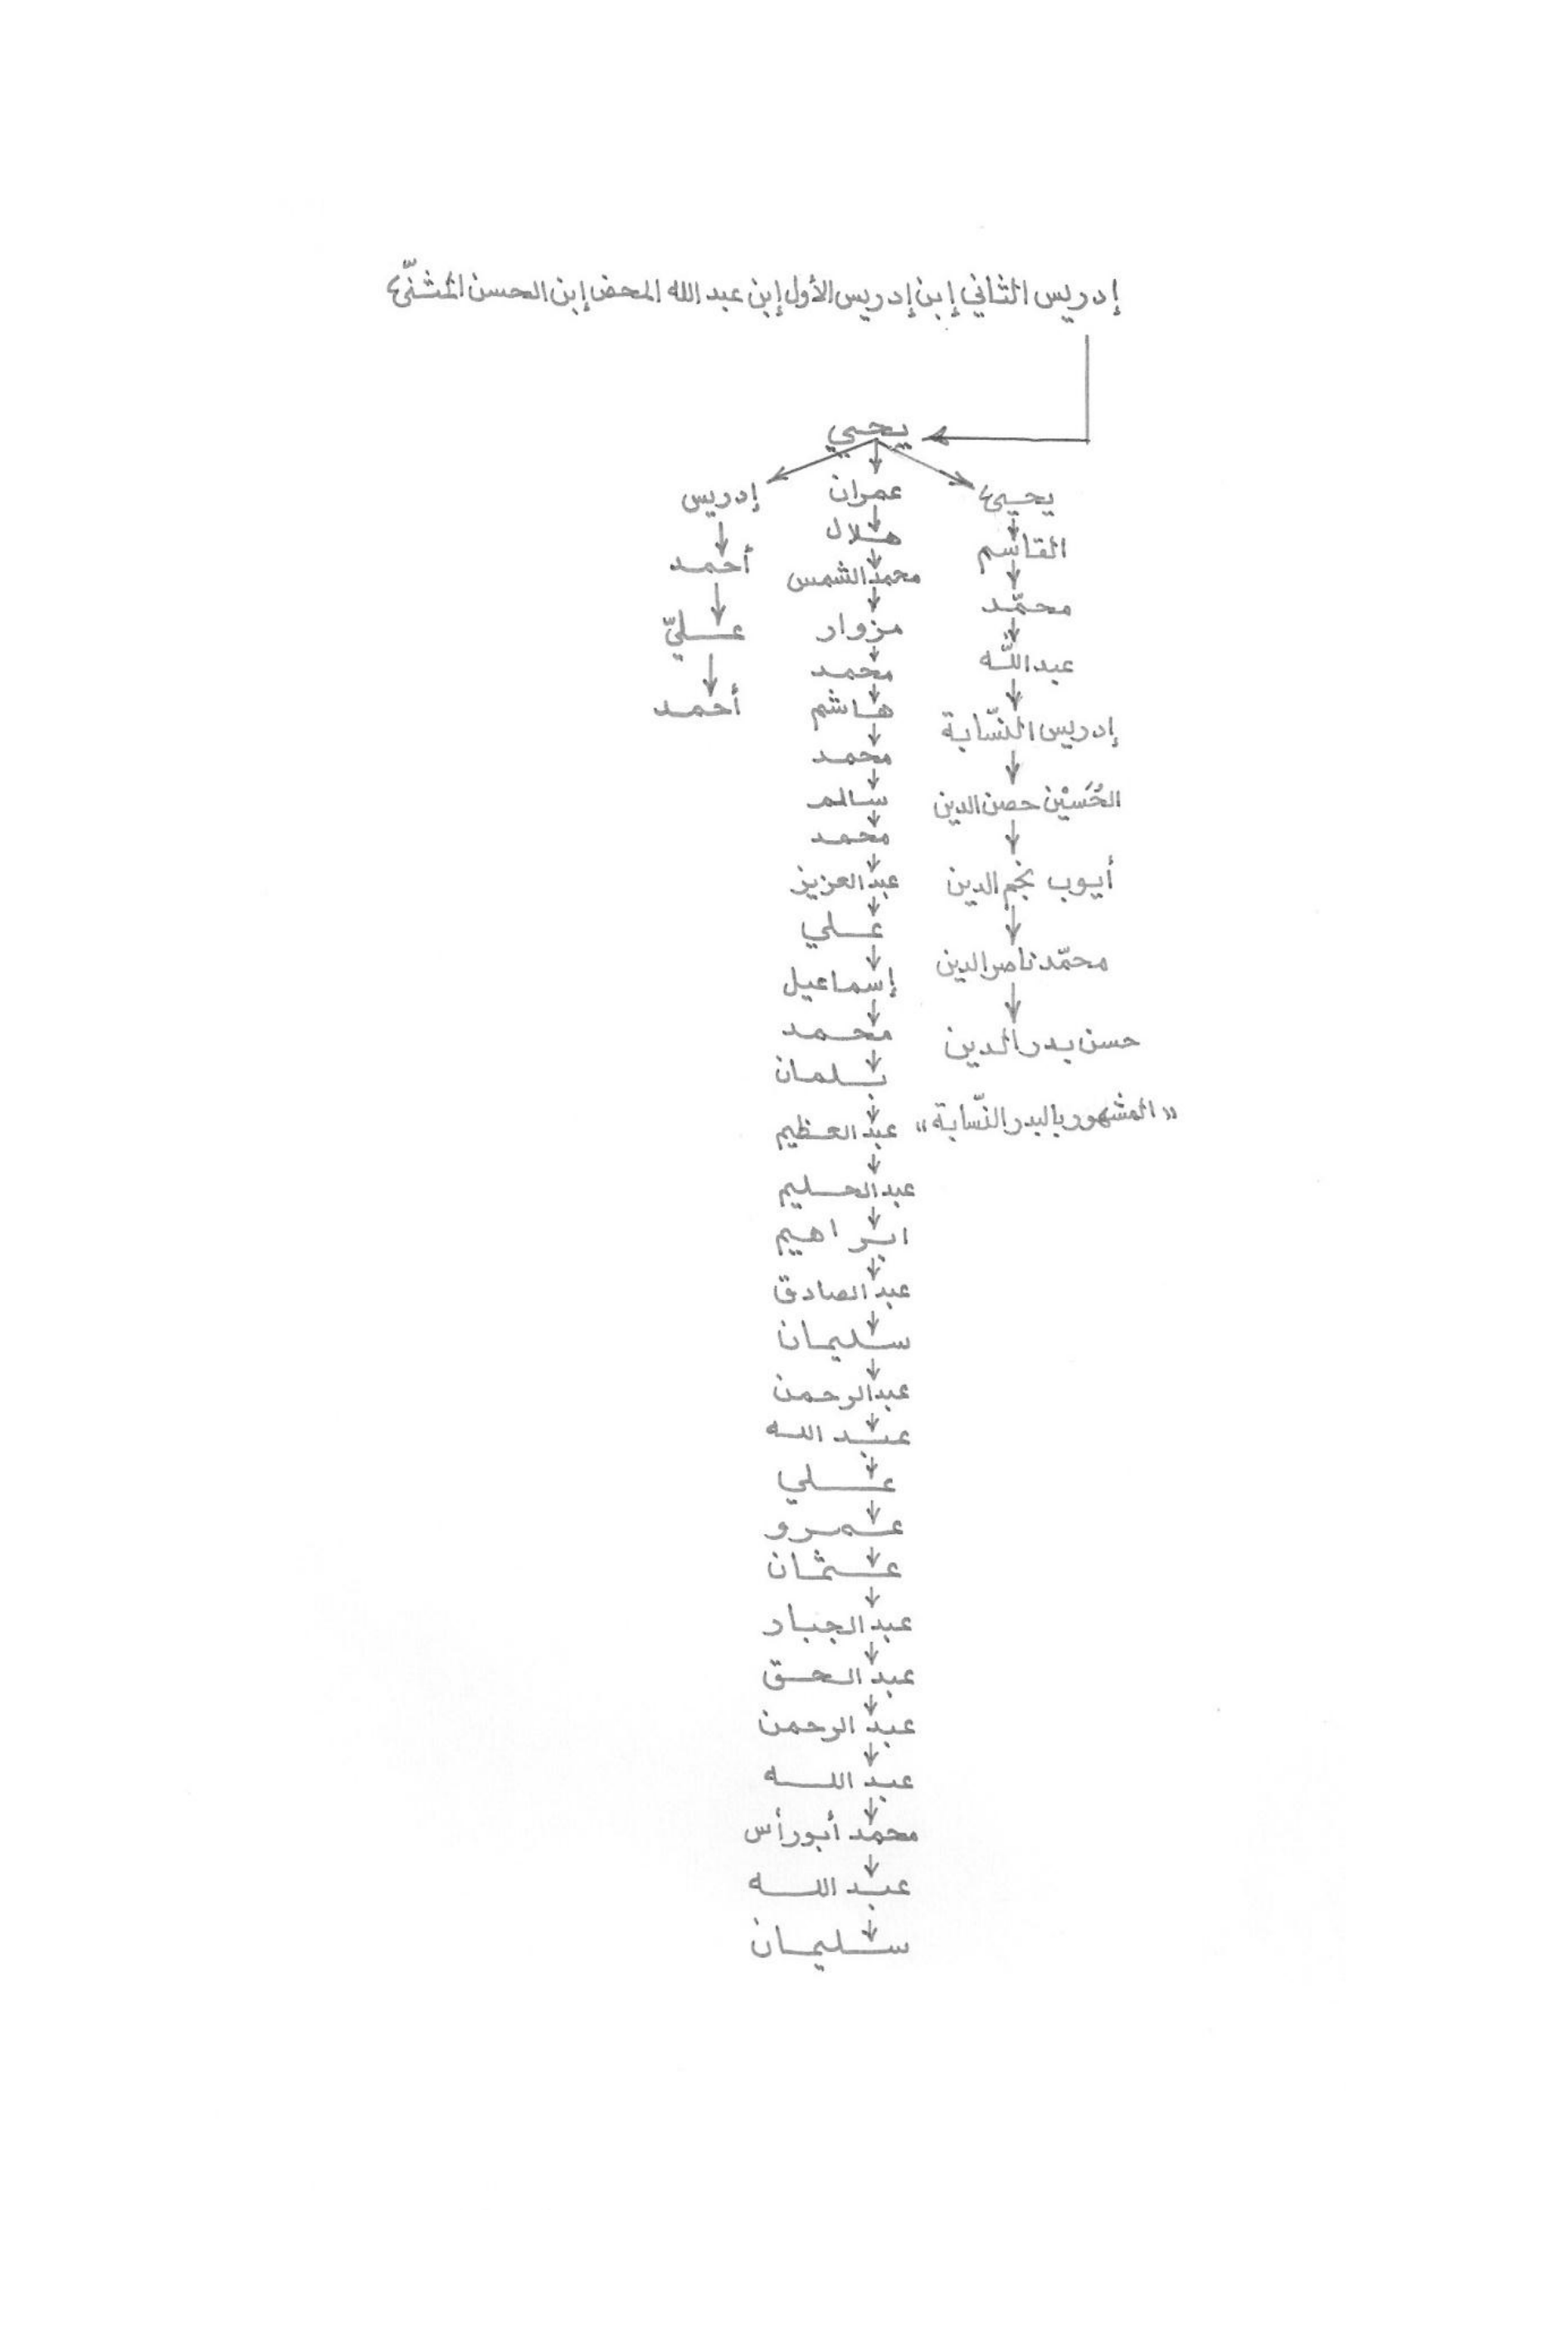 إدريس الثاني إبن إدريس الأول إبن عبد الله المحض إبن الحسن المثنّى
يحيي
يحيى
القاسم
محمّد
عبد اللّه
إدريس النسّابة
الحُسَيْن حصن الدين
أيوب نجم الدين
محمّد ناصر الدين
حسن بدر الدين
«المشهور بالبدر النسّابة»
عمران
هلال
محمد الشمس
مزوار
محمد
هاشم
محمد
سالم
محمد
عبد العزيز
علي
إسماعيل
محمد
سلمان
عبد العظيم
عبد الحليم
ابراهيم
عبد الصادق
سليمان
عبد الرحمن
عبد الله
علي
عمرو
عثمان
عبد الجبار
عبد الحق
عبد الرحمن
عبد الله
محمد أبو رأس
عبد الله
سليمان
إدريس
أحمد
عليّ
أحمد